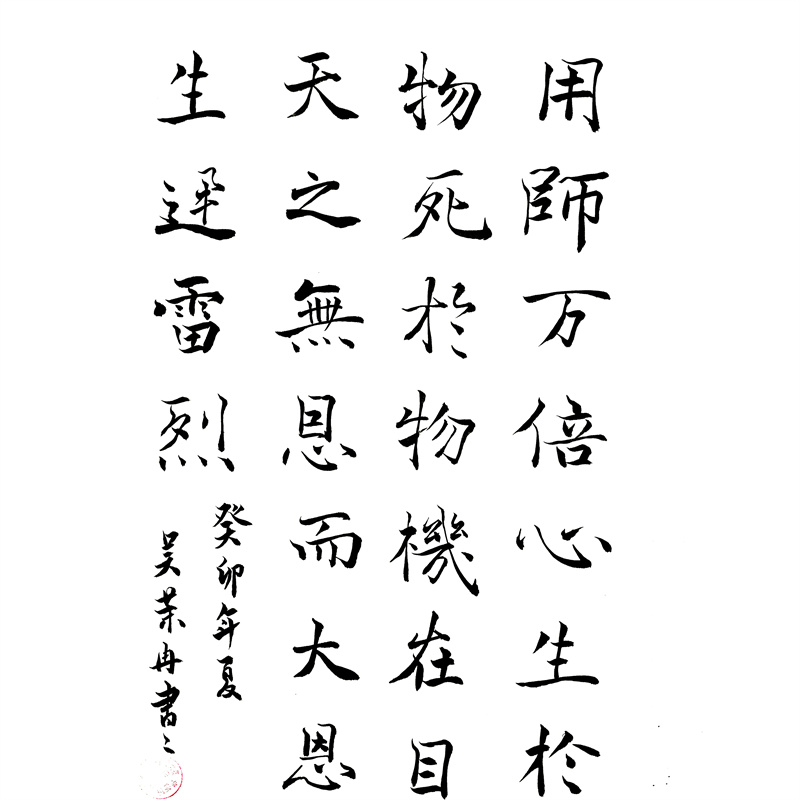 用師万倍心生於
物死於物機在目
天之無恩而大恩
生迅雷烈
癸卯年夏
吴荣冉書